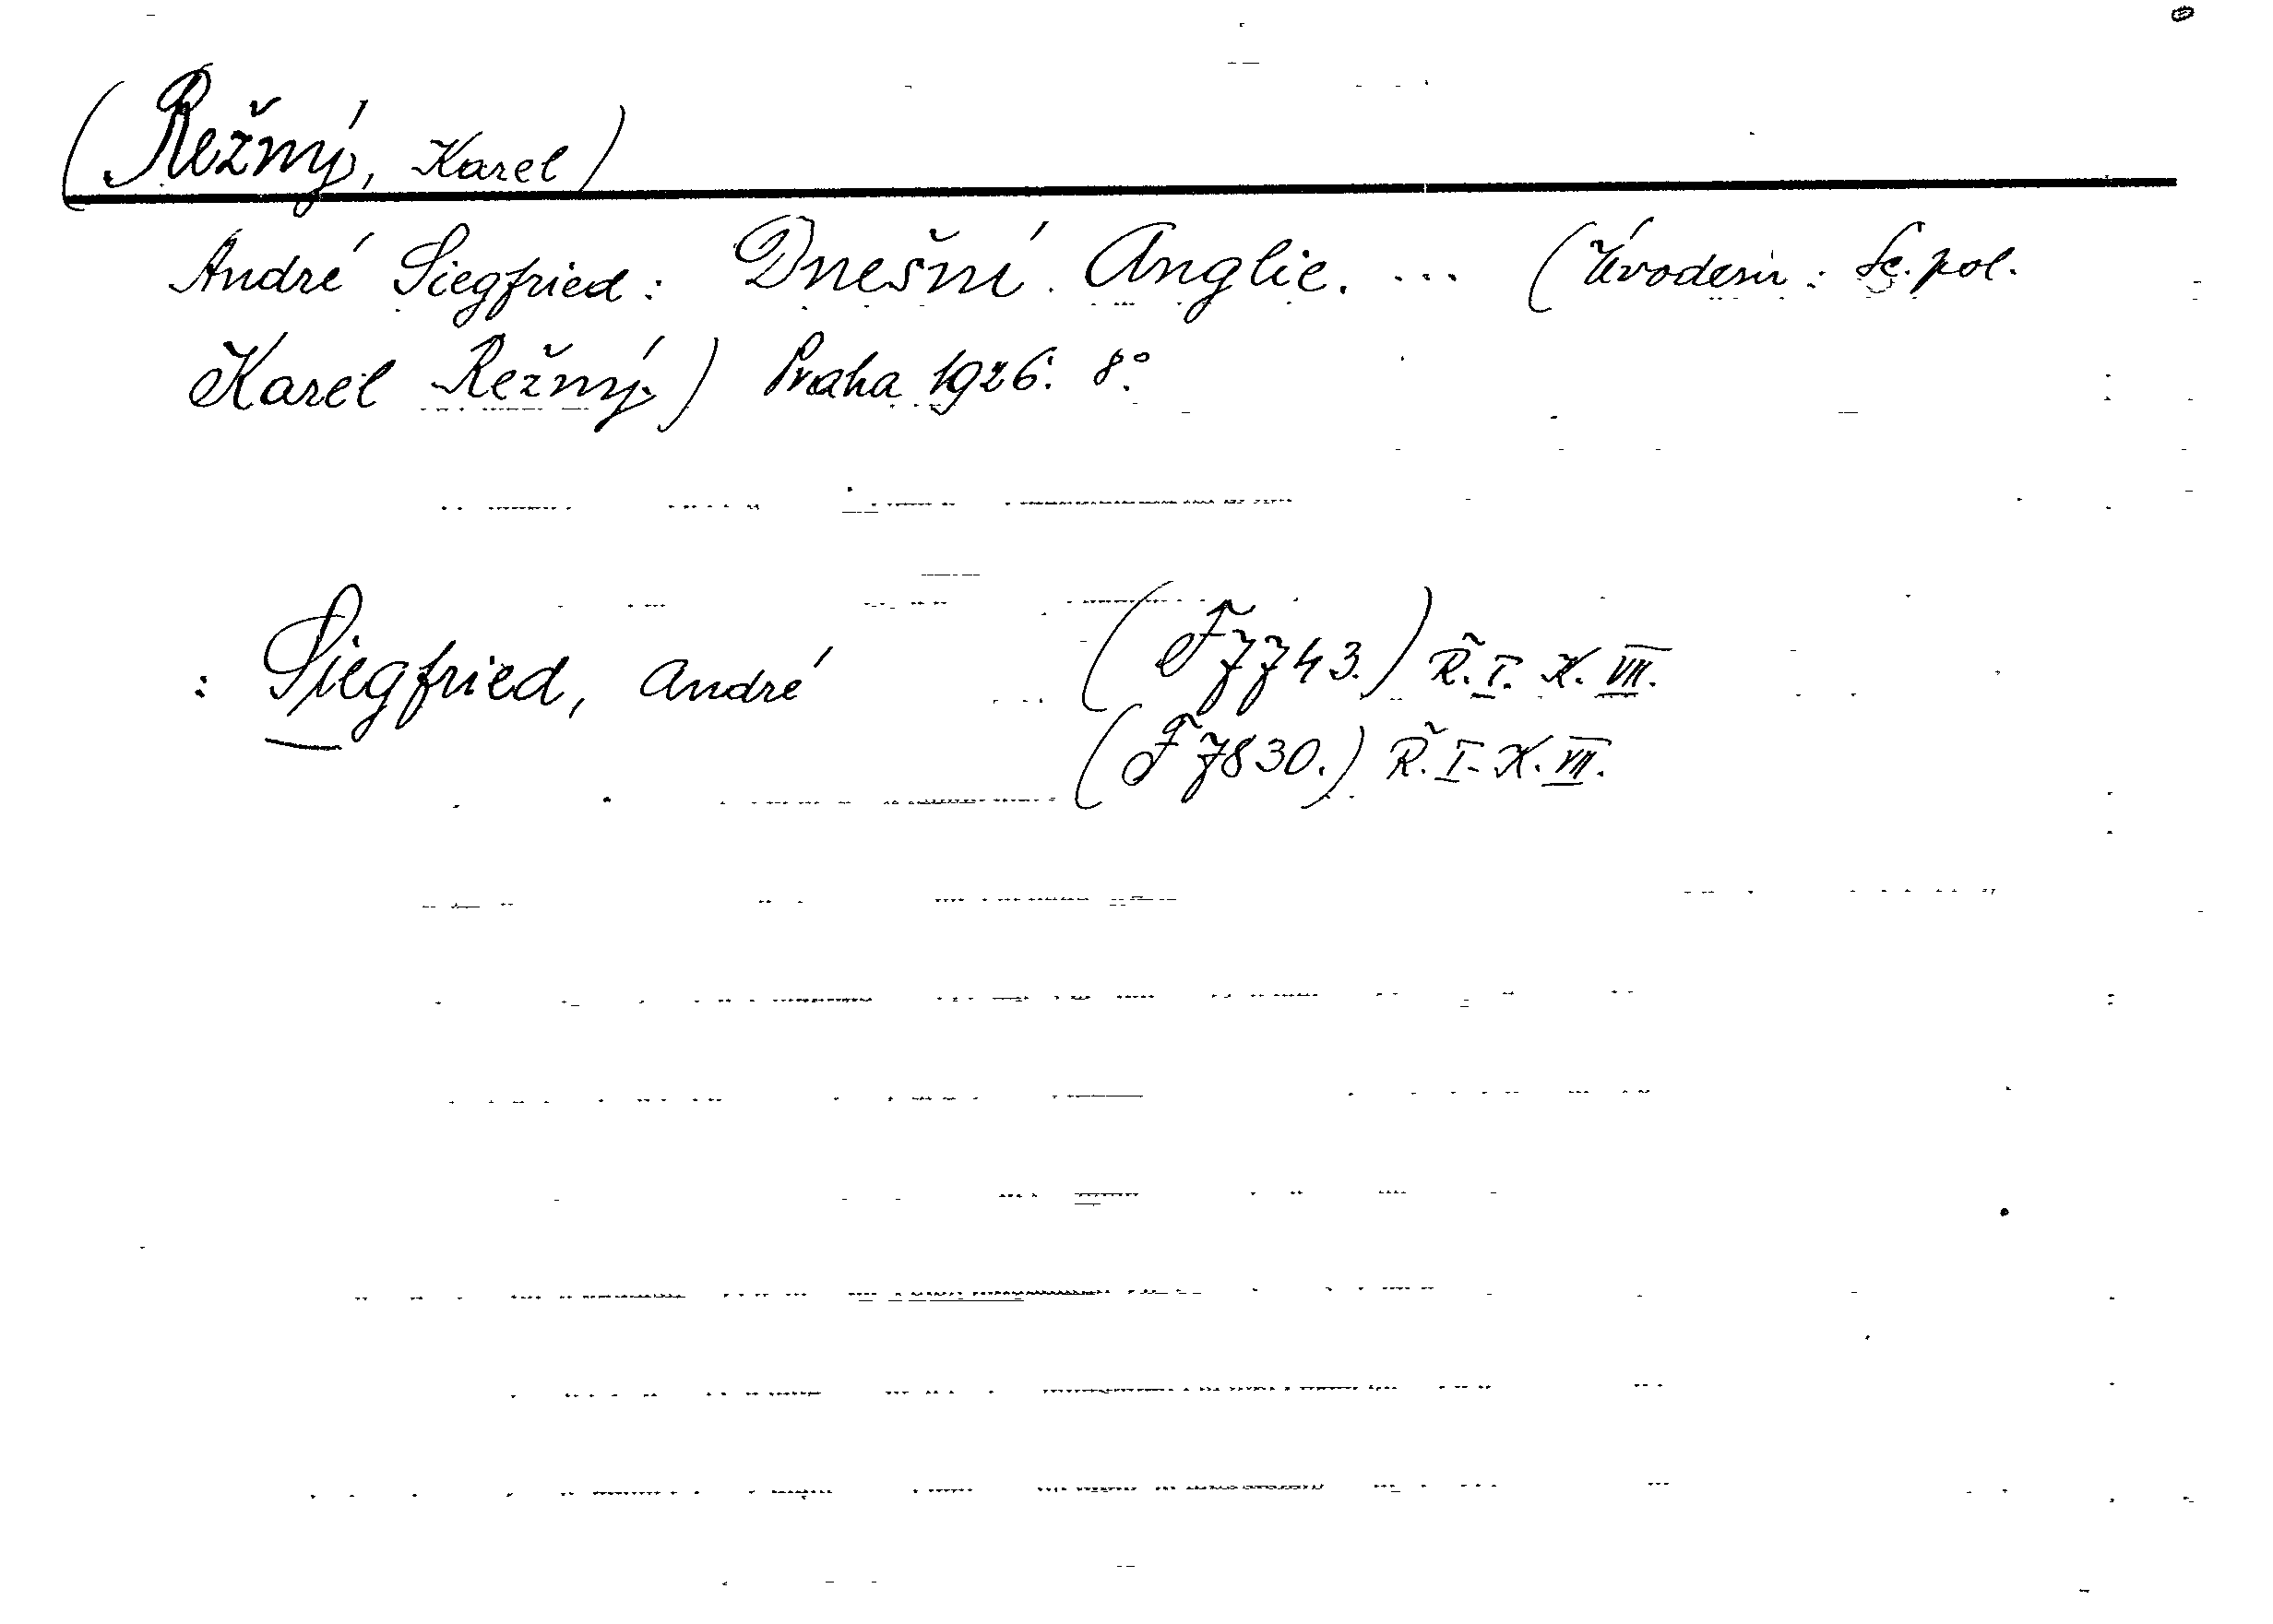 (Režný, Karel)
André Siegfried: Dnešní Anglie. ... (Úvodem: Sc. pol.
Karel Režný.) Praha 1926. 8°.
: Siegfried, André (F 7743.) Ř. I. K. VII.
(F 7830.) Ř. I. K. VII.